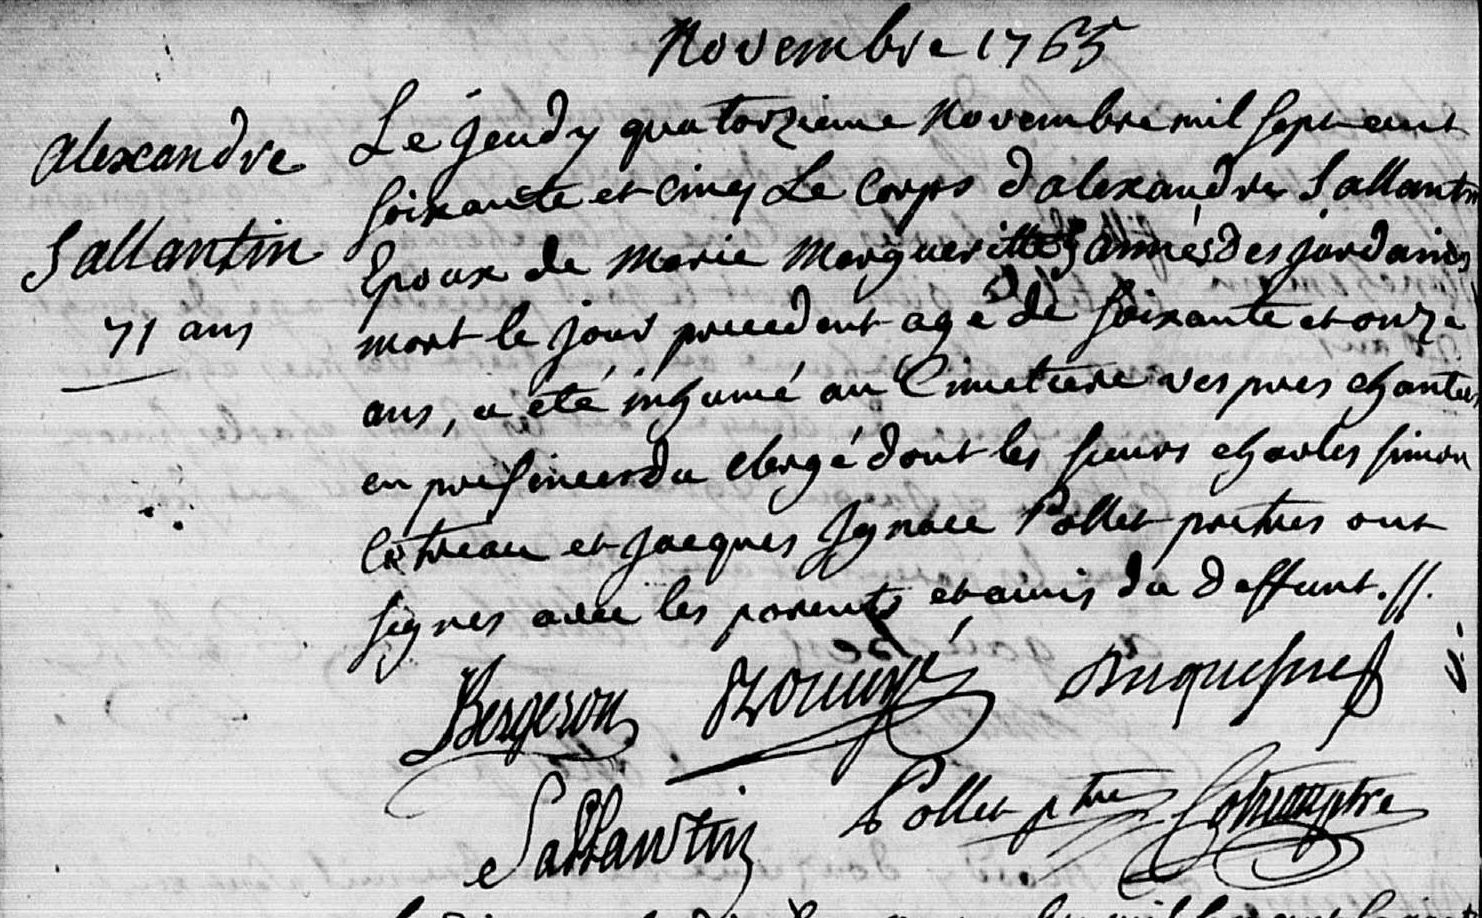 Novembre 1765
alexandre
Sallantin
71 ans
Le jeudy quatorzieme Novembre mil sept cent
soixante et cinq Le Corps d'alexandre Sallantin
Epoux de Marie Margueritte des jardains
mort le jour precedent agé de soixante et onze
ans, a été inhumé au Cimetiere vespres chantés
en presence du clergé dont les sieurs charles simon
Cotreau et jacques Ignace Pollet pretres ont
signes avec les parents et amis du deffunt.//.
Bergeron Duquesne
Sallantin Pollet ptre Cotreau ptre